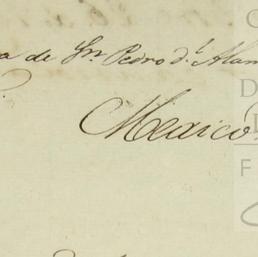 a de Sn. Pedro d.l Alam
Mexico
C
D
F